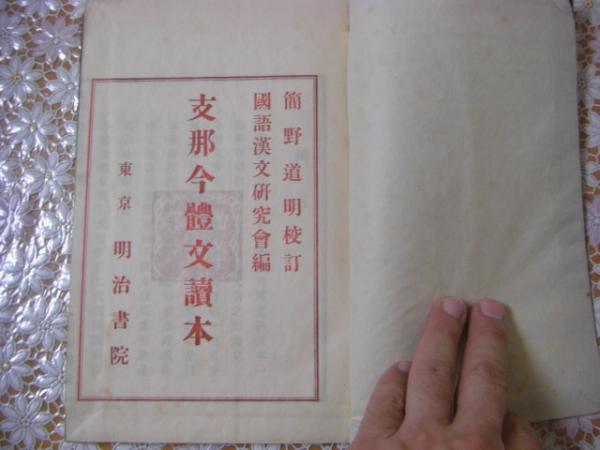 簡野道明校訂
國語漢文研究會編
支那今體文讀本
東京 明治書院